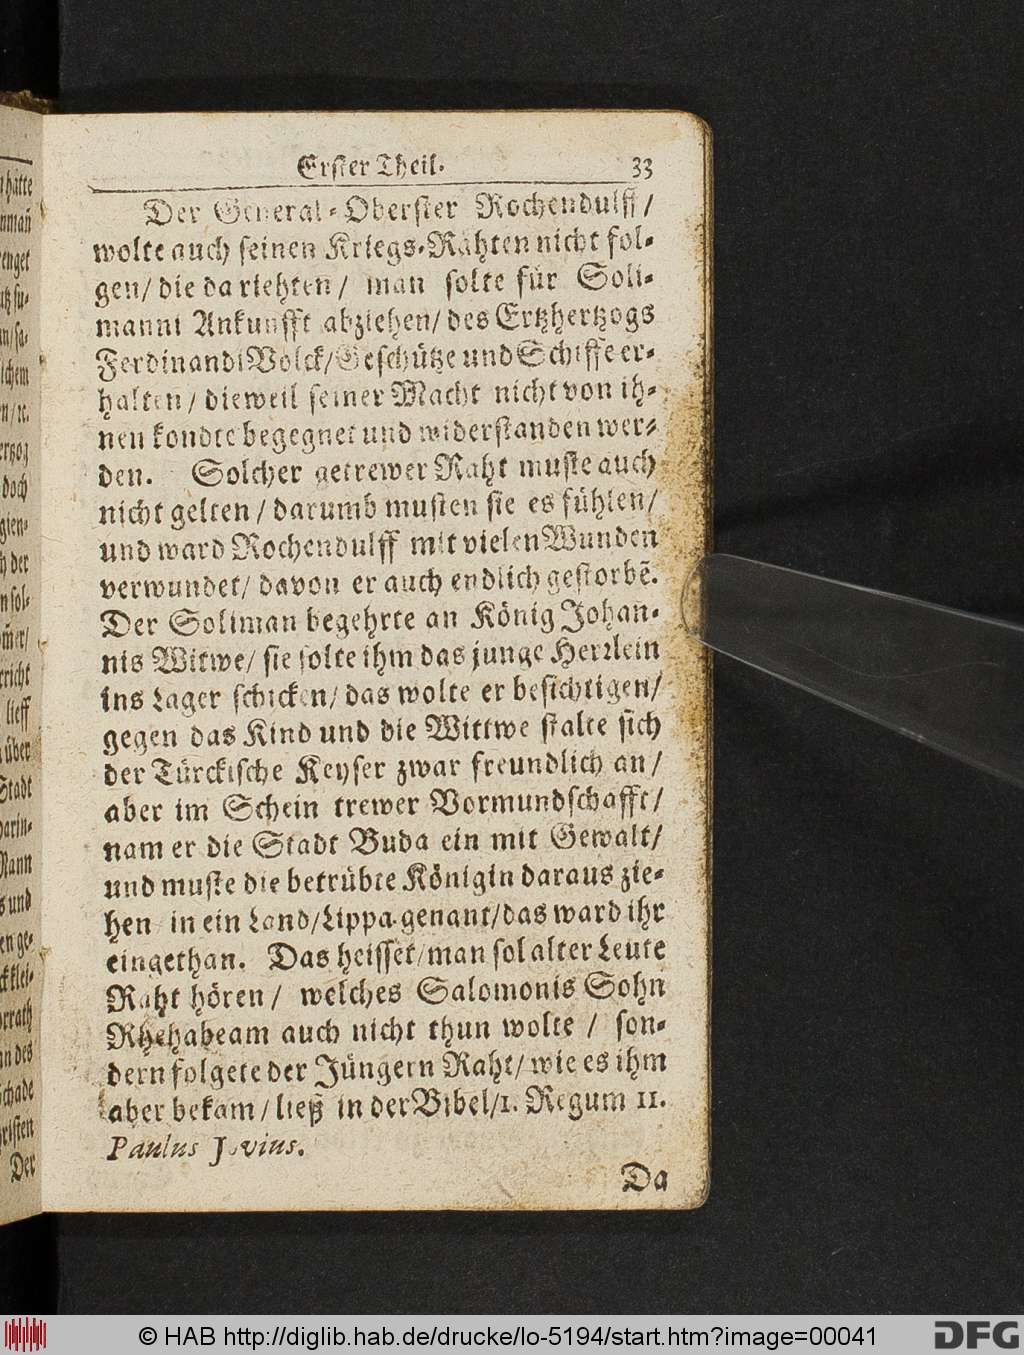 Erster Theil. 33
Der General-Oberster Rochendulff/
wolte auch seinen Kriegs-Rähten nicht fol-
gen/ die da riehten/ man solte für Soli-
manni Ankunfft abziehen/ des Ertzhertzogs
Ferdinandi Volck/ Geschütze und Schiffe er-
halten/ dieweil seiner Macht nicht von ih-
nen kondte begegnet und widerstanden wer-
den. Solcher getrewer Raht muste auch
nicht gelten/ darumb musten sie es fühlen/
und ward Rochendulff mit vielen Wunden
verwundet/ davon er auch endlich gestorbē.
Der Soliman begehrte an König Johan-
nis Witwe/ sie solte ihm das junge Herrlein
ins Lager schicken/ das wolte er besichtigen/
gegen das Kind und die Wittwe stalte sich
der Türckische Keyser zwar freundlich an/
aber im Schein trewer Vormundschafft/
nam er die Stadt Buda ein mit Gewalt/
und muste die betrübte Königin daraus zie-
hen in ein Land/ Lippa genant/ das ward ihr
eingethan. Das heisset/ man sol alter Leute
Raht hören/ welches Salomonis Sohn
Rhehabeam auch nicht thun wolte/ son-
dern folgete der Jüngern Raht/ wie es ihm
aber bekam/ ließ in der Bibel/ 1. Regum 11.
Paulus Jovius.
Da
hätte
enget
sa-
ichem
doch
der
richt
lieff
über
Stadt
Mann
und
des
Der
© HAB http://diglib.hab.de/drucke/lo-5194/start.htm?image=00041
DFG